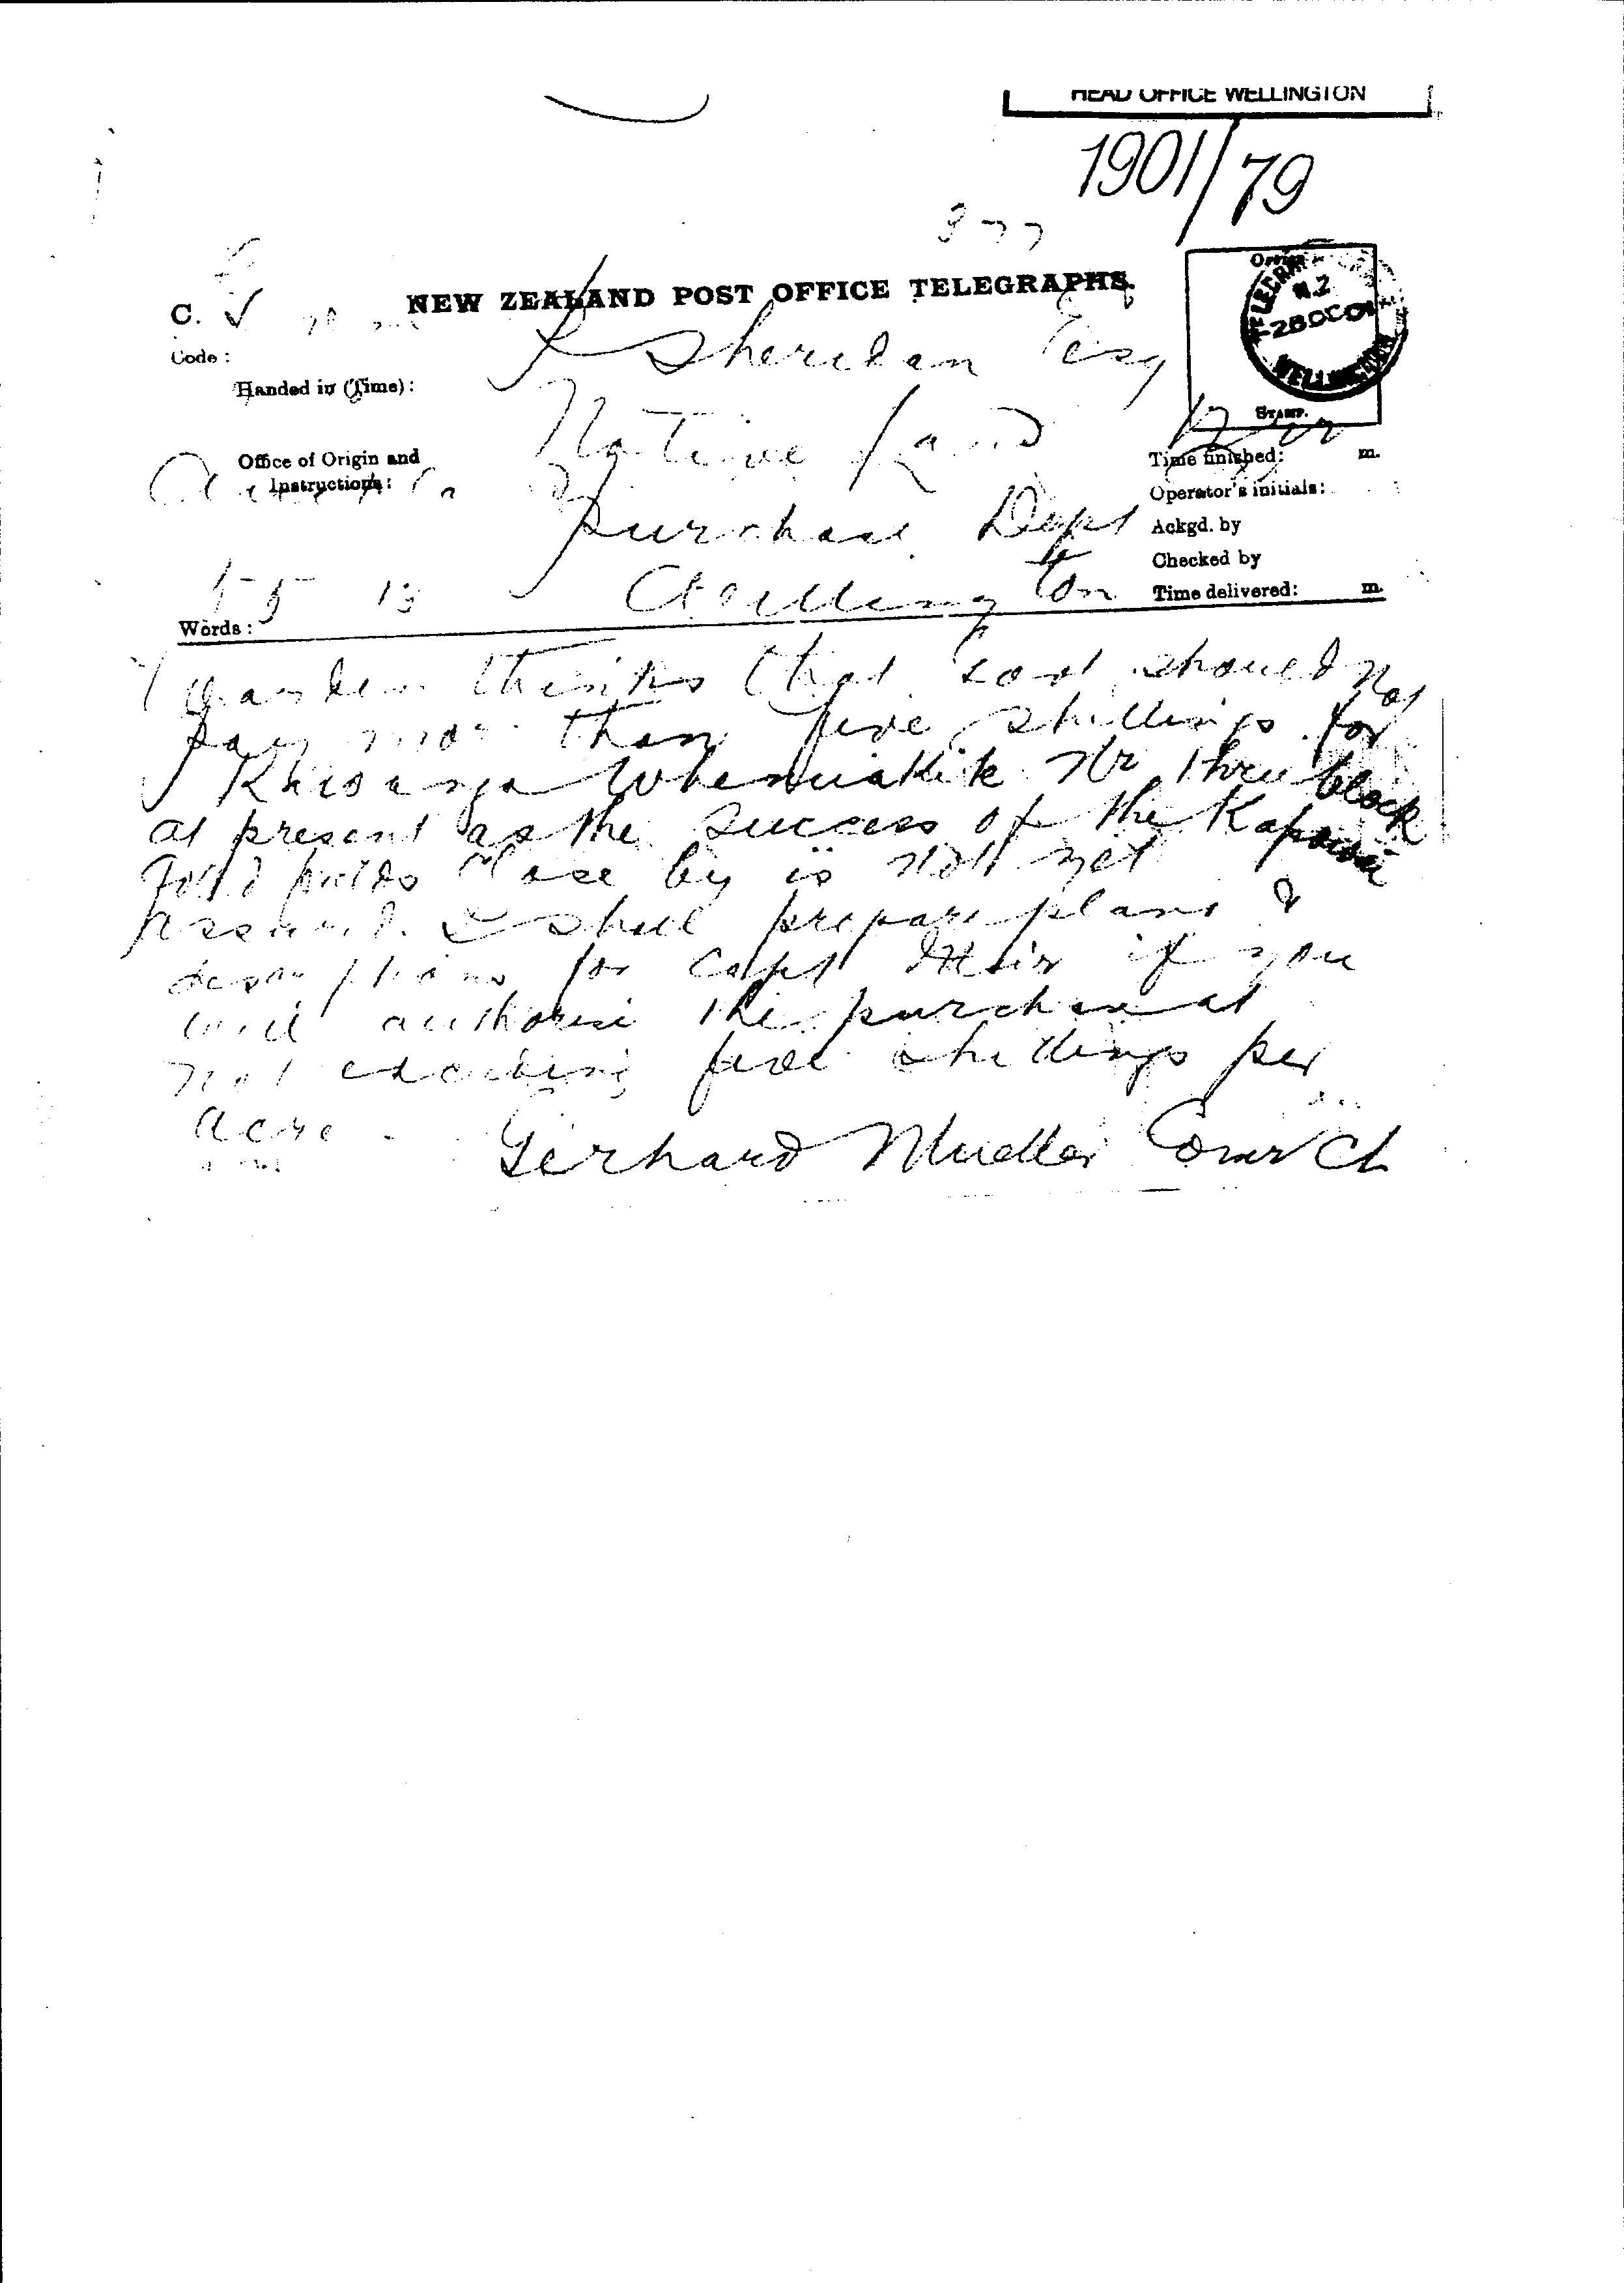 HEAD OFFICE WELLINGTON
1901/79
377
NEW ZEALAND POST OFFICE TELEGRAPHS.
C.
Code :
Handed in (Time) :
Office of Origin and
Instructions :
Words :
55 13
Sheridan Esq
Native Land
Purchase Dept
Wellington
TELEGRAPH N.Z
28 OC 01
WELLINGTON
STAMP.
Time finished: m.
Operator's initials:
Ackgd. by
Checked by
Time delivered: m.
Warden thinks that Govt should not
pay more than five shillings for
Whenuakite Nr three block
at present as the success of the Kapowai
gold fields close by is not yet
assured. I shall prepare plans &
descriptions for Capt if you
will authorise the purchase at
not exceeding five shillings per
acre.
Gerhard Mueller Comr Cl